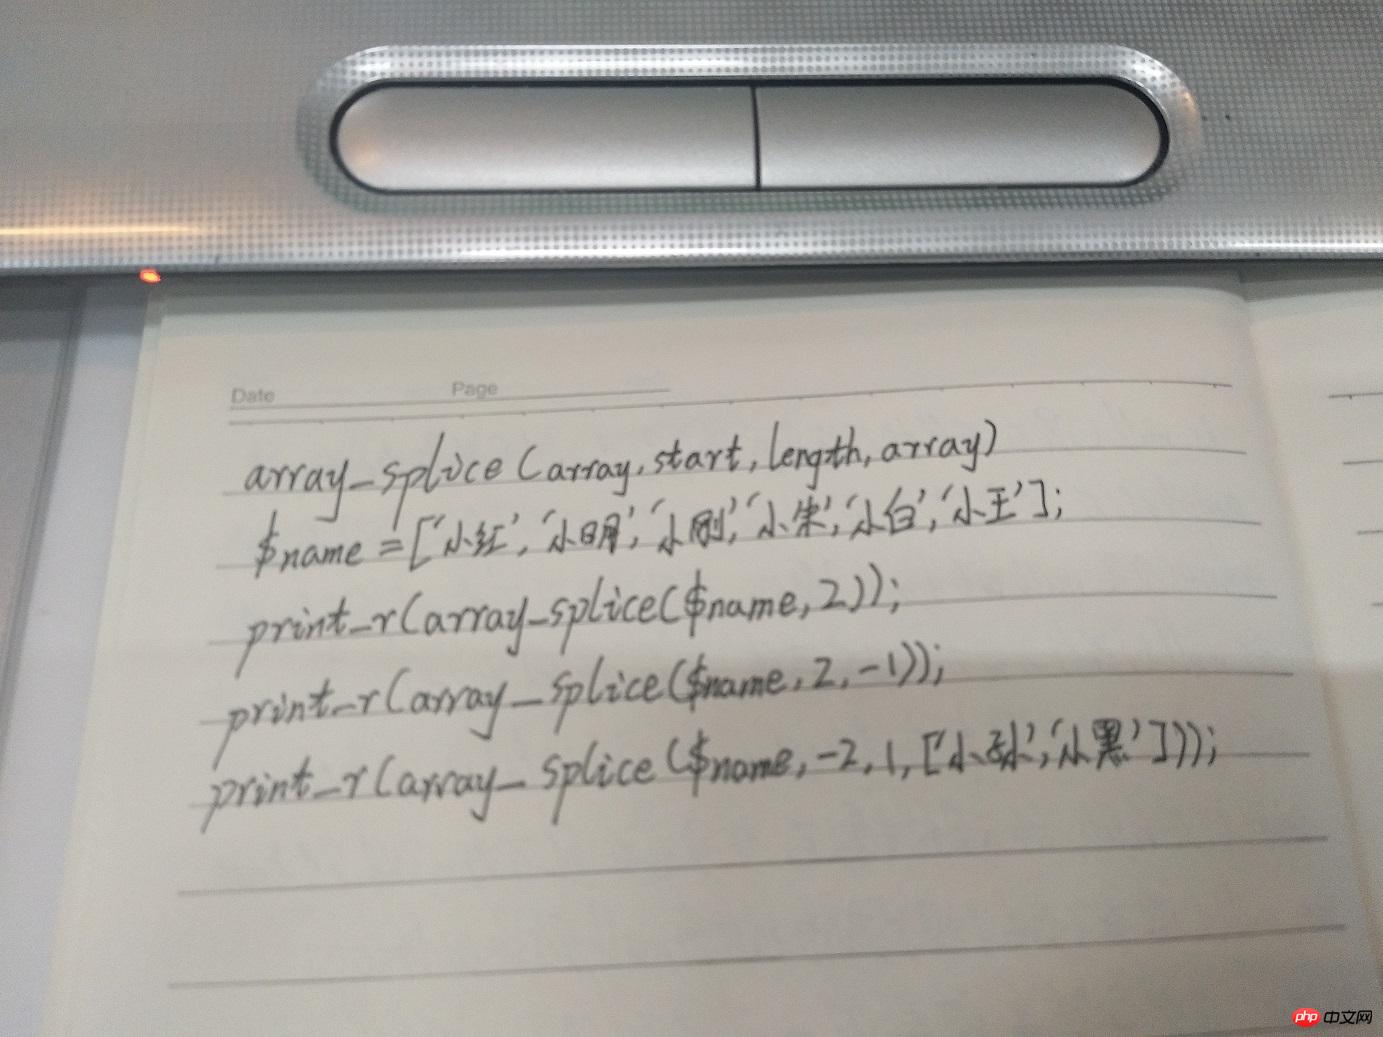 Date Page
array_splice(array,start,length,array)
$name=['小红','小明','小刚','小朱','小白','小王'];
print_r(array_splice($name,2));
print_r(array_splice($name,2,-1));
print_r(array_splice($name,-2,1,['小孙','小黑']));
php 中文网